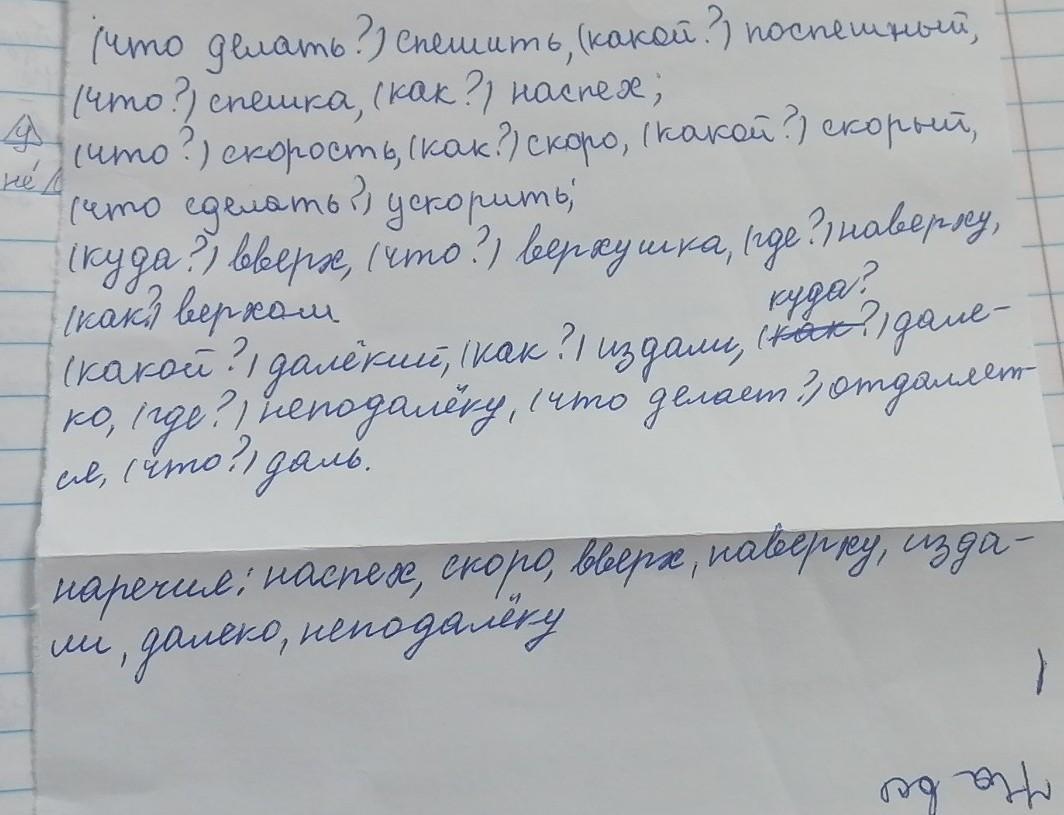 (что делать?) спешить, (какой?) поспешный,
(что?) спешка, (как?) наспех;
(что?) скорость, (как?) скоро, (какой?) скорый,
(что сделать?) ускорить;
(куда?) вверх, (что?) верхушка, (где?) наверху,
(как?) верхом
куда?
(какой?) далёкий, (как?) издали, (как?) дале-
ко, (где?) неподалёку, (что делает?) отдаляет-
ся, (что?) даль.
наречия: наспех, скоро, вверх, наверху, изда-
ли, далеко, неподалёку